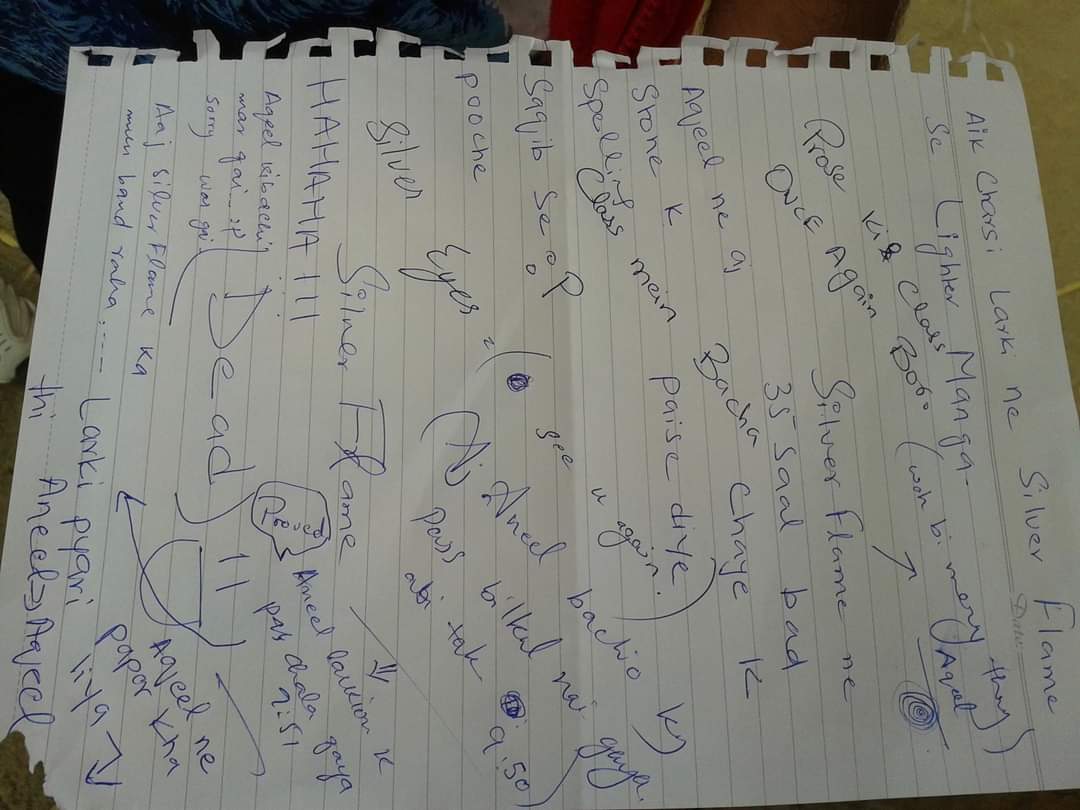 Aik Charsi Larki ne Silver Flame
Se Lighter Manga.
Kis Class Bobo (woh bi mery thry)
Aqeel
Prose
Once Again Silver Flame ne
35 Saal bad
Aqeel ne aj Bacha Chaye K
Stone K paise diye)
Spelling main
Class
u again.
Saqib se
pooche
see
Aneel bachio ky
Silver Eyes = (Aj bilkul nai gaya.
pass abi tak 9:50)
Silver Flame
HAHAHAHA !!!
Aneel larkion k
pas chala gaya
9:51
Aqeel ki bachi
mar gai...:p
sorry was gai
(Dead) !!
Aaj Silver Flame ka
mun band raha....
Larki pyari
thi
Aqeel ne
papor kha
liya
Aneel => Aqeel